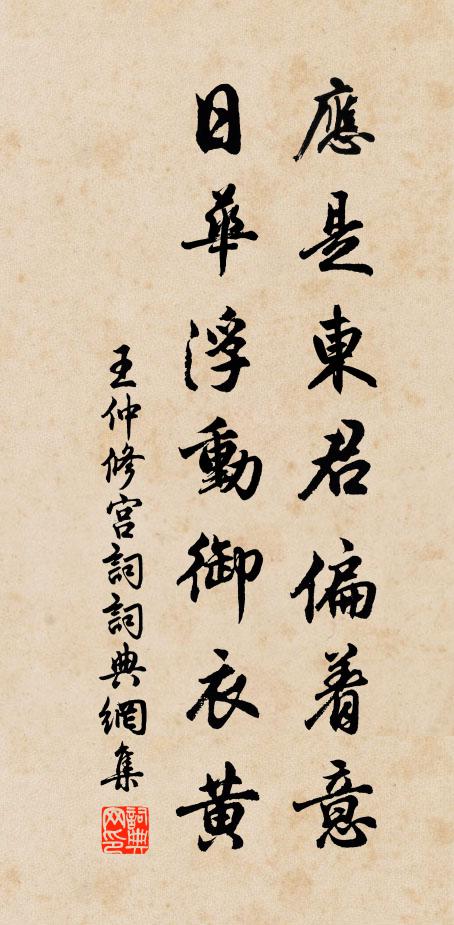 應是東君偏着意
日華浮動御衣黃
王仲修宮詞詞典網集
詞典
网印